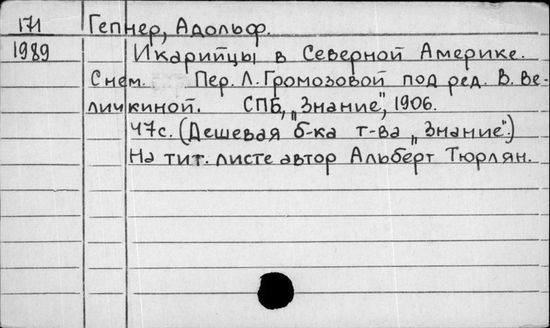 171 Гепнер, Адольф.
1989 Икарийцы в Северной Америке.
С нем. Пер. Л. Громозовой под ред. В. Ве-
личкиной. СПБ, „Знание", 1906.
47с. (Дешевая б-ка т-ва „Знание".)
На тит. листе автор Альберт Тюрлян.